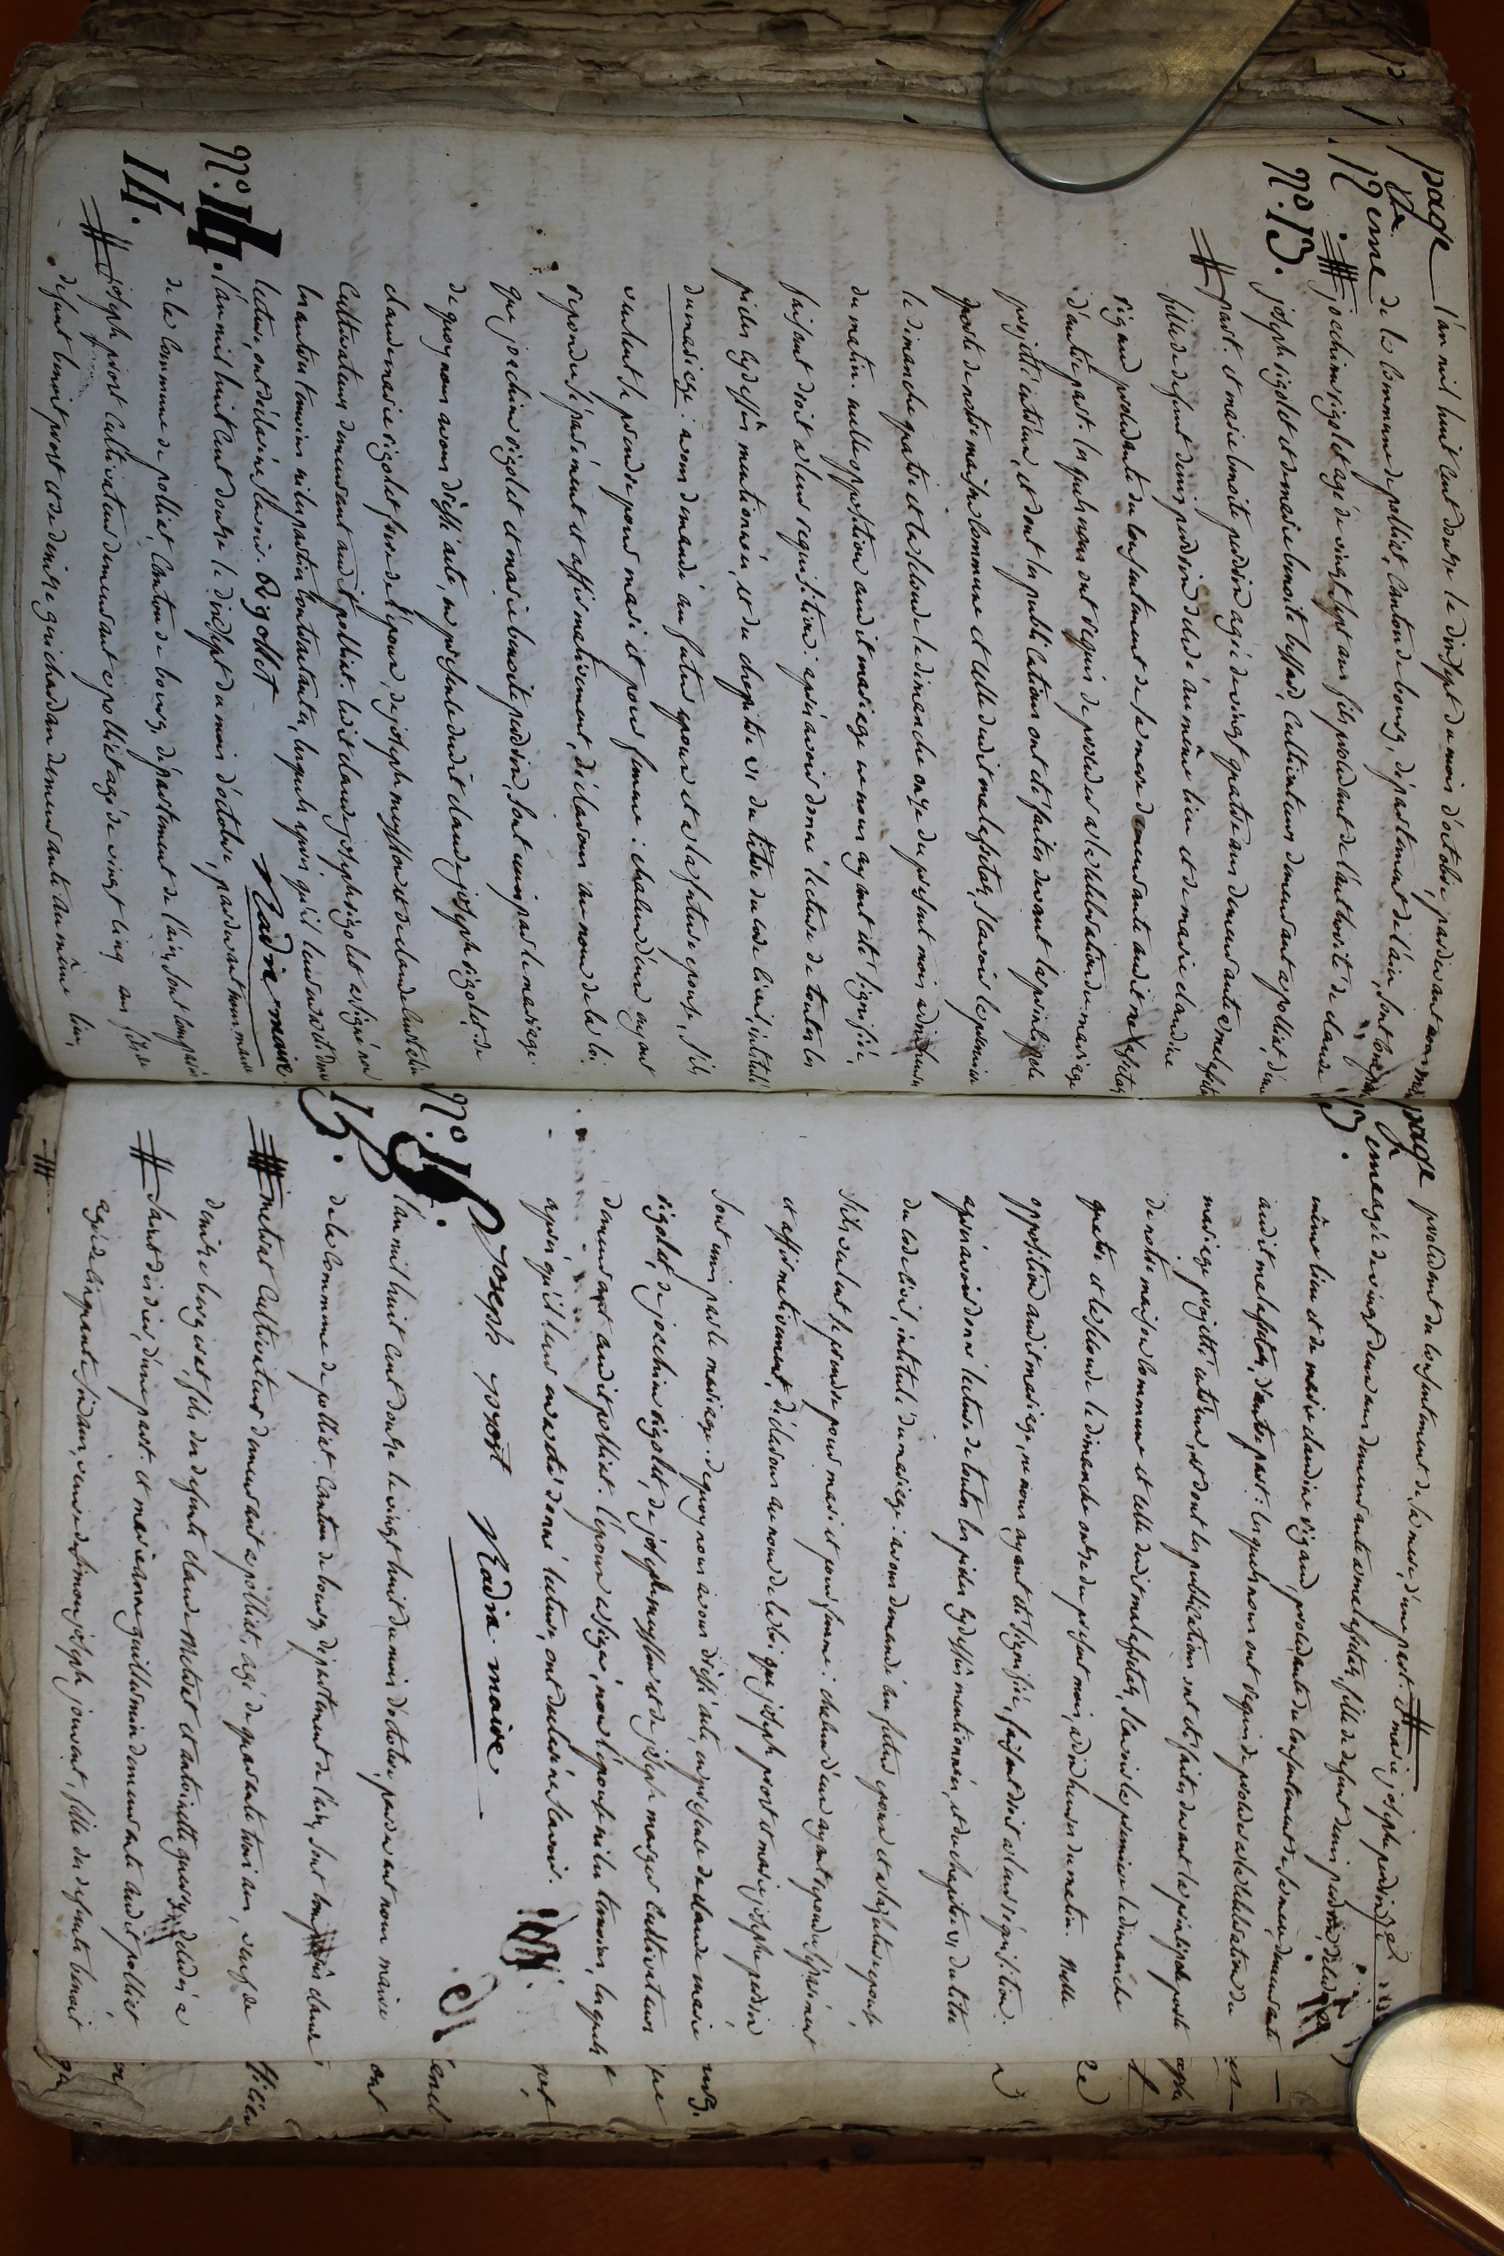 page
12eme
l'an mil huit cent douze le dixsept du mois d'octobre, pardevant nous maire
de la commune de polliat, canton de bourg, département de l'ain, sont
N.° 13. joachim rigolet agé de vingt sept ans fils procédant de l'authorité de claude
joseph rigolet et de marie benoite buffard, cultivateurs demeurant a polliat, d'une
part. et marie benoite perdrix agée de vingt quatre ans demeurante
fille de defunt denis perdrix decedé au même lieu et de marie claudine
rigaud procedante du consentement de sa mere demeurante audit
d'autre part. lesquels nous ont requis de proceder a la celebration du mariage
projetté entr'eux, et dont les publications ont été faites devant la principale
porte de notre maison commune et celle dudit malafretaz, scavoir la premiere
le dimanche quatre et la seconde le dimanche onze du present mois a
du matin. nulle opposition audit mariage ne nous ayant été signifiée,
faisant droit a leur requisition. après avoir donné lecture de toutes les
pieces cydessus mentionnées, et du chapitre VI du titre du code civil, intitulé
du mariage. avons demandé au futur epoux et a la future epouse, s'ils
veulent se prendre pour mari et pour femme: chacun d'eux ayant
repondu séparément et affirmativement, déclarons au nom de la loi
que joachim rigolet et marie benoite perdrix, sont unis par le mariage
de quoy nous avons dressé acte, en presence dudit claude joseph rigolet, de
claude marie rigolet frere de l'époux, de joseph
cultivateurs demeurant audit polliat. ledit claude joseph rigolet a signé non
les autres temoins ni les parties contractantes, lesquels apres qu'il leur en a été donné
lecture, ont déclaré ne scavoir. Rigollet
maire
N.° 14. l'an mil huit cent douze le dixsept du mois d'octobre, pardevant nous maire
14. de la commune de polliat, canton de bourg, département de l'ain, sont comparus
joseph prost cultivateur demeurant a polliat agé de vingt cinq ans fils de
defunt benoit prost et de denise guichardan demeurante au même lieu,
page
13.
procedant du consentement de sa mere, d'une part. et marie josephe perdrix
agée de vingt deux ans demeurante a malafretaz, fille de defunt denis perdrix
même lieu et de marie claudine rigaud, procedante du consentement de sa mere, demeurante
audit malafretaz, d'autre part: lesquels nous ont requis de proceder a la celebration du
mariage projetté entr'eux, et dont les publications ont été faites devant la principale porte
de notre maison commune et celle dudit malafretaz, scavoir la premiere le dimanche
quatre et la seconde le dimanche onze du present mois, a dix heures du matin. Nulle
opposition audit mariage, ne nous ayant été signifiée, faisant droit a leur réquisition.
après avoir donné lecture de toutes les pieces cydessus mentionnées, et du chapitre VI du titre
du code civil, intitulé du mariage: avons demandé au futur epoux et a la future epouse,
s'ils veulent se prendre pour mari et pour femme: chacun d'eux ayant repondu séparément
et affirmativement, déclarons au nom de la loi que joseph prost et marie josephe perdrix
sont unis par le mariage. de quoy nous avons dressé acte, en presence de claude marie
rigolet, de joachim rigolet, de joseph et de joseph cultivateurs
demeurant audit polliat. l'époux a signé, non l'épouse ni les temoins, lesquels
après qu'il leur en a été donné lecture, ont declaré ne scavoir.
joseph prost maire
N.° 15. l'an mil huit cent douze le vingt huit du mois d'octobre, pardevant nous maire
15. de la commune de polliat canton de bourg, département de l'ain, sont comparus claude
cultivateur demeurant a polliat, agé de quarante trois ans, veuf de
denise burgiset, fils de defunts claude et antoinette decedés a
d'une part. et marie anne guillermin demeurante audit polliat
agée de cinquante six ans, veuve de simon joseph jousant, fille des defunts benoit